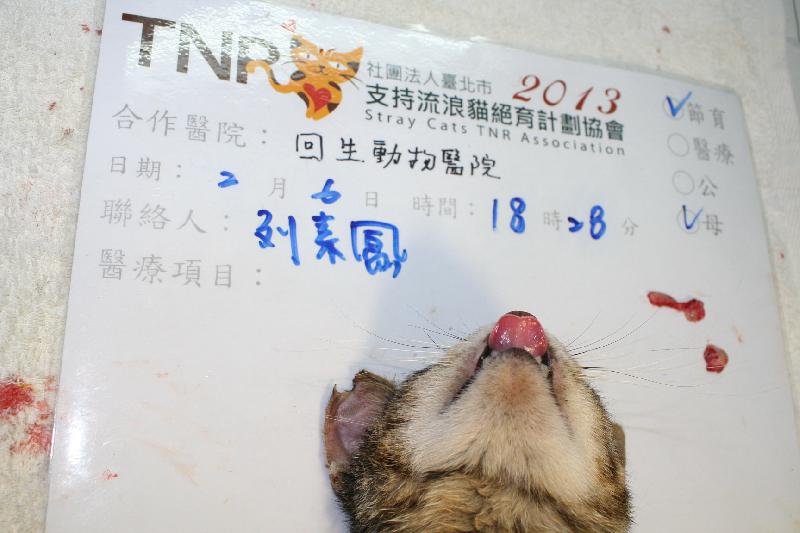 TNR
社團法人臺北市 2013
支持流浪貓絕育計劃協會
Stray Cats TNR Association
節育
醫療
公
母
合作醫院：回生動物醫院
日期：2月6日 時間：18時28分
聯絡人：列素鳳
醫療項目：